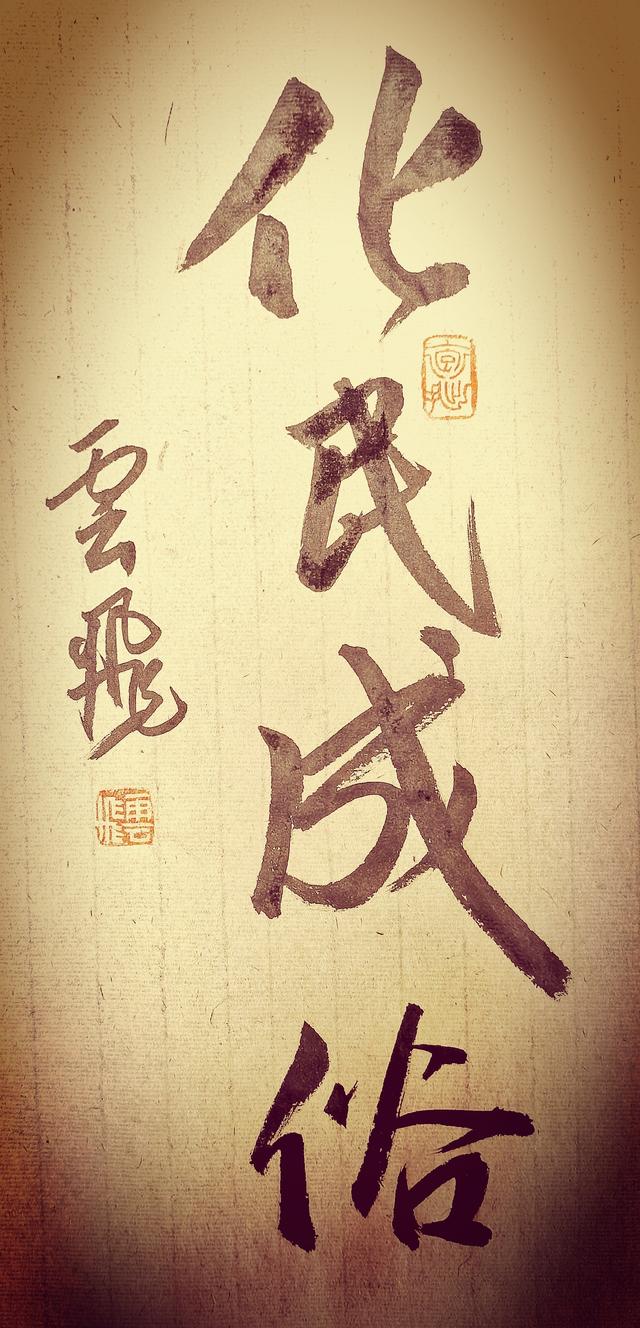 化民成俗
雲飛